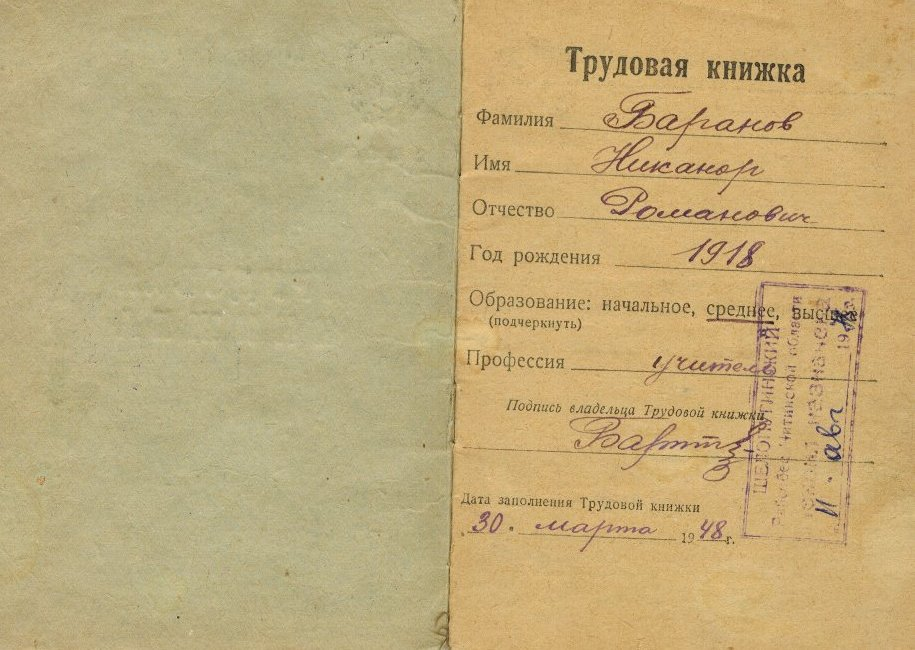 Трудовая книжка
Фамилия Баранов
Имя Никанор
Отчество Романович
Год рождения 1918
Образование: начальное, среднее, высшее
(подчеркнуть)
Профессия учитель
Подпись владельца Трудовой книжки
Дата заполнения Трудовой книжки
30. марта 1948 г.
ШЕЛОПУГИНСКИЙ
Читинской области
11. авг 19